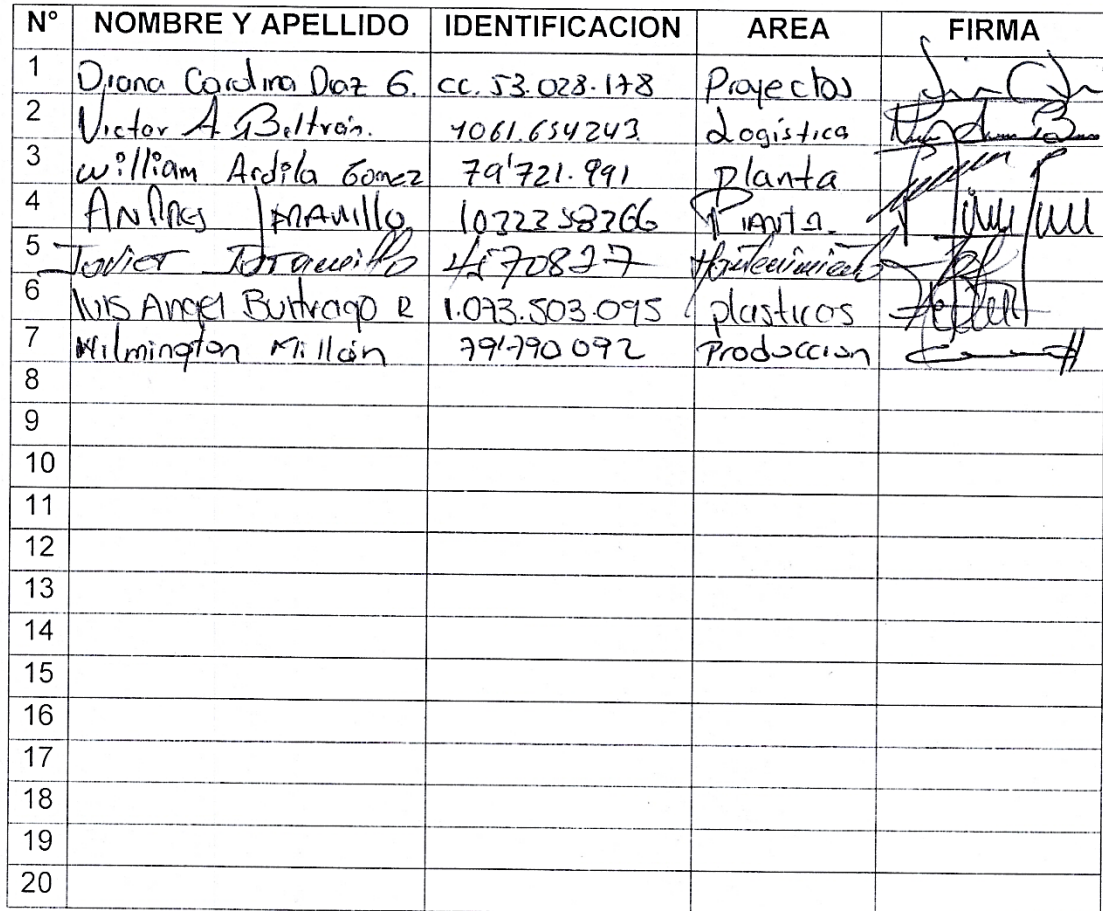 N° NOMBRE Y APELLIDO IDENTIFICACION AREA FIRMA
1 Diana Carolina Diaz G. cc. 53.028.178 Proyectos
2 Victor A. Beltrán. 1061.654243 Logística
3 William Ardila Gomez 79'721.991 Planta
4 Andres Jaramillo Planta
5 Javier Jaramillo 4570827 Mantenimiento
6 luis Angel Buitrago R 1.073.503.095 plasticos
7 Wilmington Millán 79'790092 Produccion
8
9
10
11
12
13
14
15
16
17
18
19
20